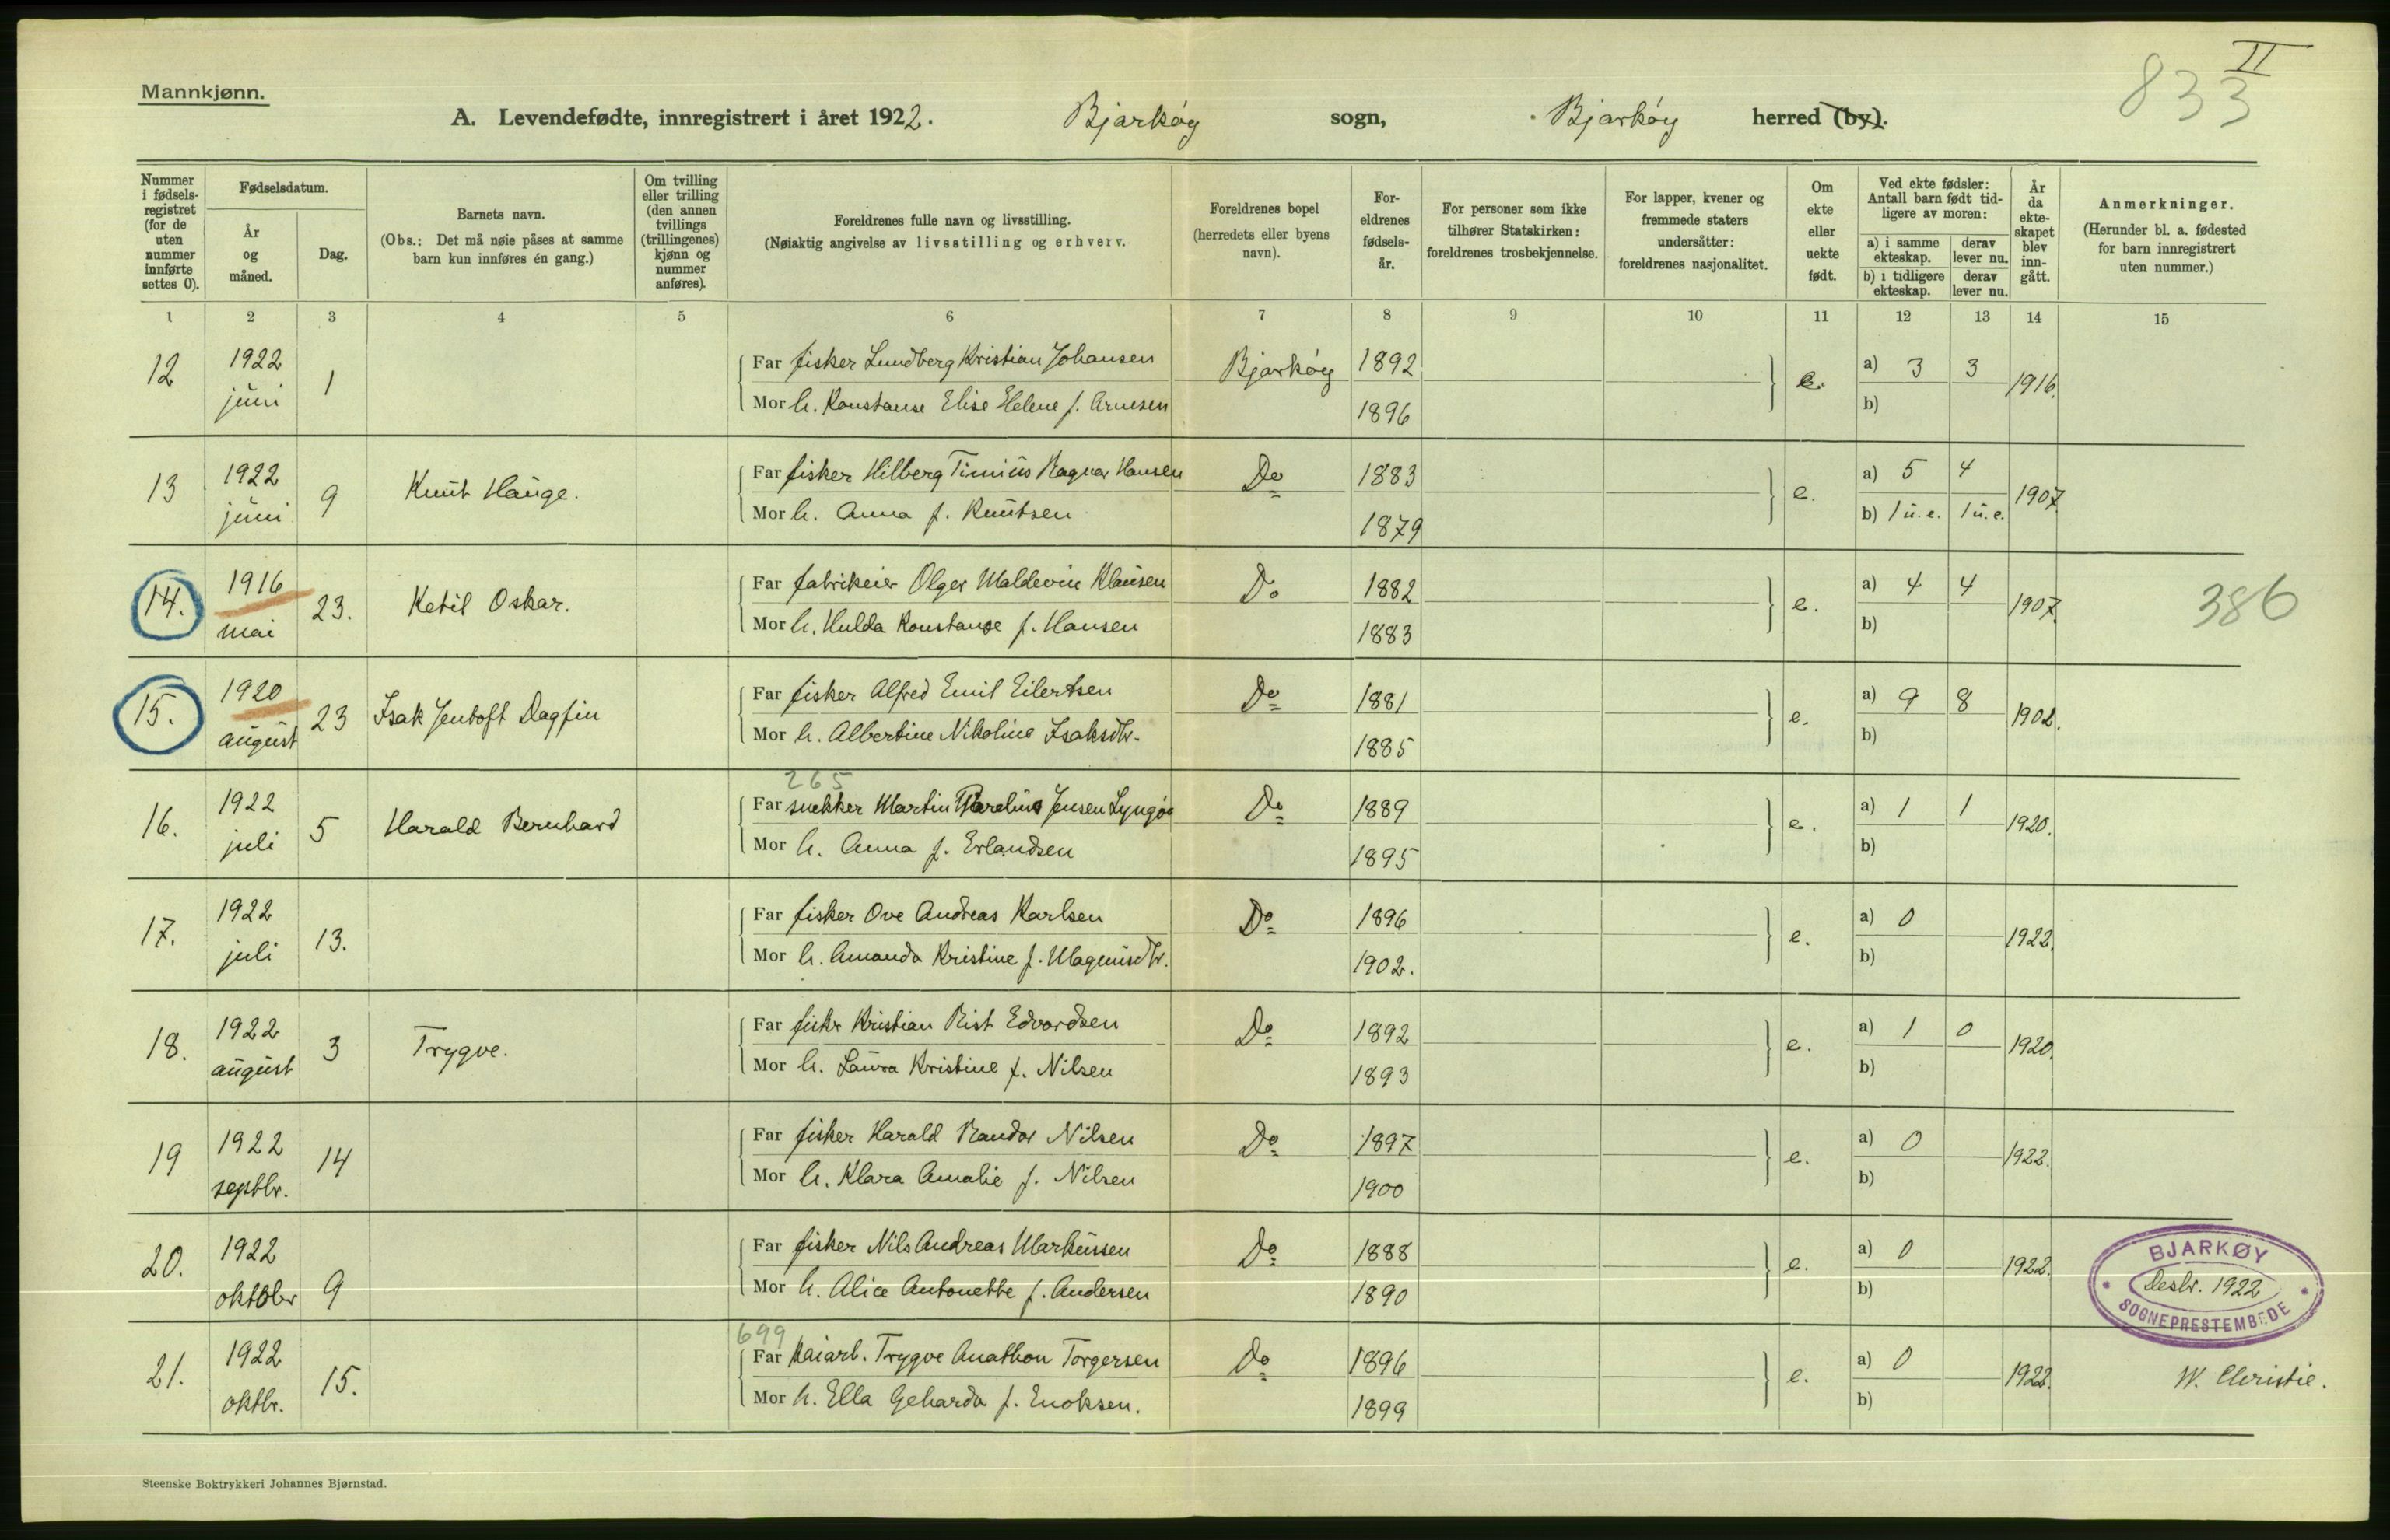 II
833
Mannkjønn.
A. Levendefødte, innregistrert i året 1922. Bjarkøy sogn, Bjarkøy herred (by).
Nummer i fødsels-registret (for de uten nummer innførte settes 0).
Fødselsdatum.
År og måned.
Dag.
Barnets navn.
(Obs.: Det må nøie påses at samme barn kun innføres én gang.)
Om tvilling eller trilling (den annen tvillings (trillingenes) kjønn og nummer anføres).
Foreldrenes fulle navn og livsstilling.
(Nøiaktig angivelse av livsstilling og erhverv.
Foreldrenes bopel (herredets eller byens navn).
For-eldrenes fødsels-år.
For personer som ikke tilhører Statskirken: foreldrenes trosbekjennelse.
For lapper, kvener og fremmede staters undersåtter: foreldrenes nasjonalitet.
Om ekte eller uekte født.
Ved ekte fødsler: Antall barn født tid-ligere av moren:
a) i samme ekteskap. derav lever nu.
b) i tidligere ekteskap. derav lever nu.
År da ekte-skapet blev inn-gått.
Anmerkninger.
(Herunder bl. a. fødested for barn innregistrert uten nummer.)
1 2 3 4 5 6 7 8 9 10 11 12 13 14 15
12 1922 juni 1 Far fisker Lundberg Kristian Johansen Bjarkøy 1892 e. a) 3 3 1916.
Mor h. Konstanse Elise Helene f. Arnesen 1896 b)
13 1922 juni 9 Knut Hauge. Far fisker Hilberg Timius Ragnar Hansen Do 1883 e. a) 5 4 1907.
Mor h. Anna f. Knutsen 1879 b) 1 u.e. 1 u.e.
14. 1916 mai 23. Ketil Oskar. Far fabrikeier Olger Maldevin Klausen Do 1882 e. a) 4 4 1907. 386
Mor h. Hulda Konstanse f. Hansen 1883 b)
15. 1920 august 23 Isak Jentoft Dagfin Far fisker Alfred Emil Eilertsen Do 1881 e. a) 9 8 1902.
Mor h. Albertine Nikoline Isaksdtr. 1885 b)
265
16. 1922 juli 5 Harald Bernhard Far snekker Martin Jensen Lyngøe Do 1889 e. a) 1 1 1920.
Mor h. Anna f. Erlandsen 1895 b)
17. 1922 juli 13. Far fisker Ove Andreas Karlsen Do 1896 e. a) 0 1922.
Mor h. Amanda Kristine f. Magnusdtr. 1902. b)
18. 1922 august 3 Trygve. Far fiskr Kristian Rist Edvardsen Do 1892 e. a) 1 0 1920.
Mor h. Laura Kristine f. Nilsen 1893 b)
19 1922 septbr. 14 Far fisker Harald Randor Nilsen Do 1897 e. a) 0 1922.
Mor h. Klara Amalie f. Nilsen 1900 b)
20. 1922 oktober 9 Far fisker Nils Andreas Markussen Do 1888 e. a) 0 1922.
Mor h. Alice Antonette f. Andersen 1890 b)
BJARKØY
Desbr. 1922
SOGNEPRESTEMBEDE
699
21. 1922 oktbr. 15. Far Kaiarb. Trygve Anathon Torgersen Do 1896 e. a) 0 1922. W. Christie.
Mor h. Ella Geharda f. Enoksen. 1899 b)
Steenske Boktrykkeri Johannes Bjørnstad.